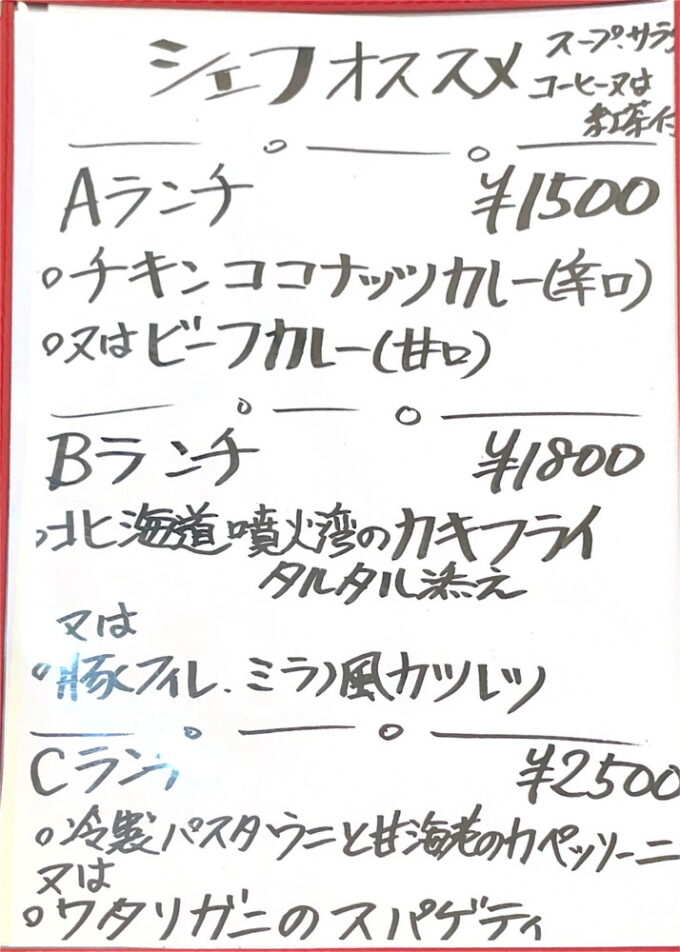 シェフオススメ
スープ.サラダ
コーヒー又は
紅茶付
Aランチ ¥1500
○チキンココナッツカレー(辛口)
○又はビーフカレー(甘口)
Bランチ ¥1800
○北海道噴火湾のカキフライ
タルタル添え
又は
○豚フィレ.ミラノ風カツレツ
Cランチ ¥2500
○冷製パスタウニと甘海老のカペッリーニ
又は
○ワタリガニのスパゲティ